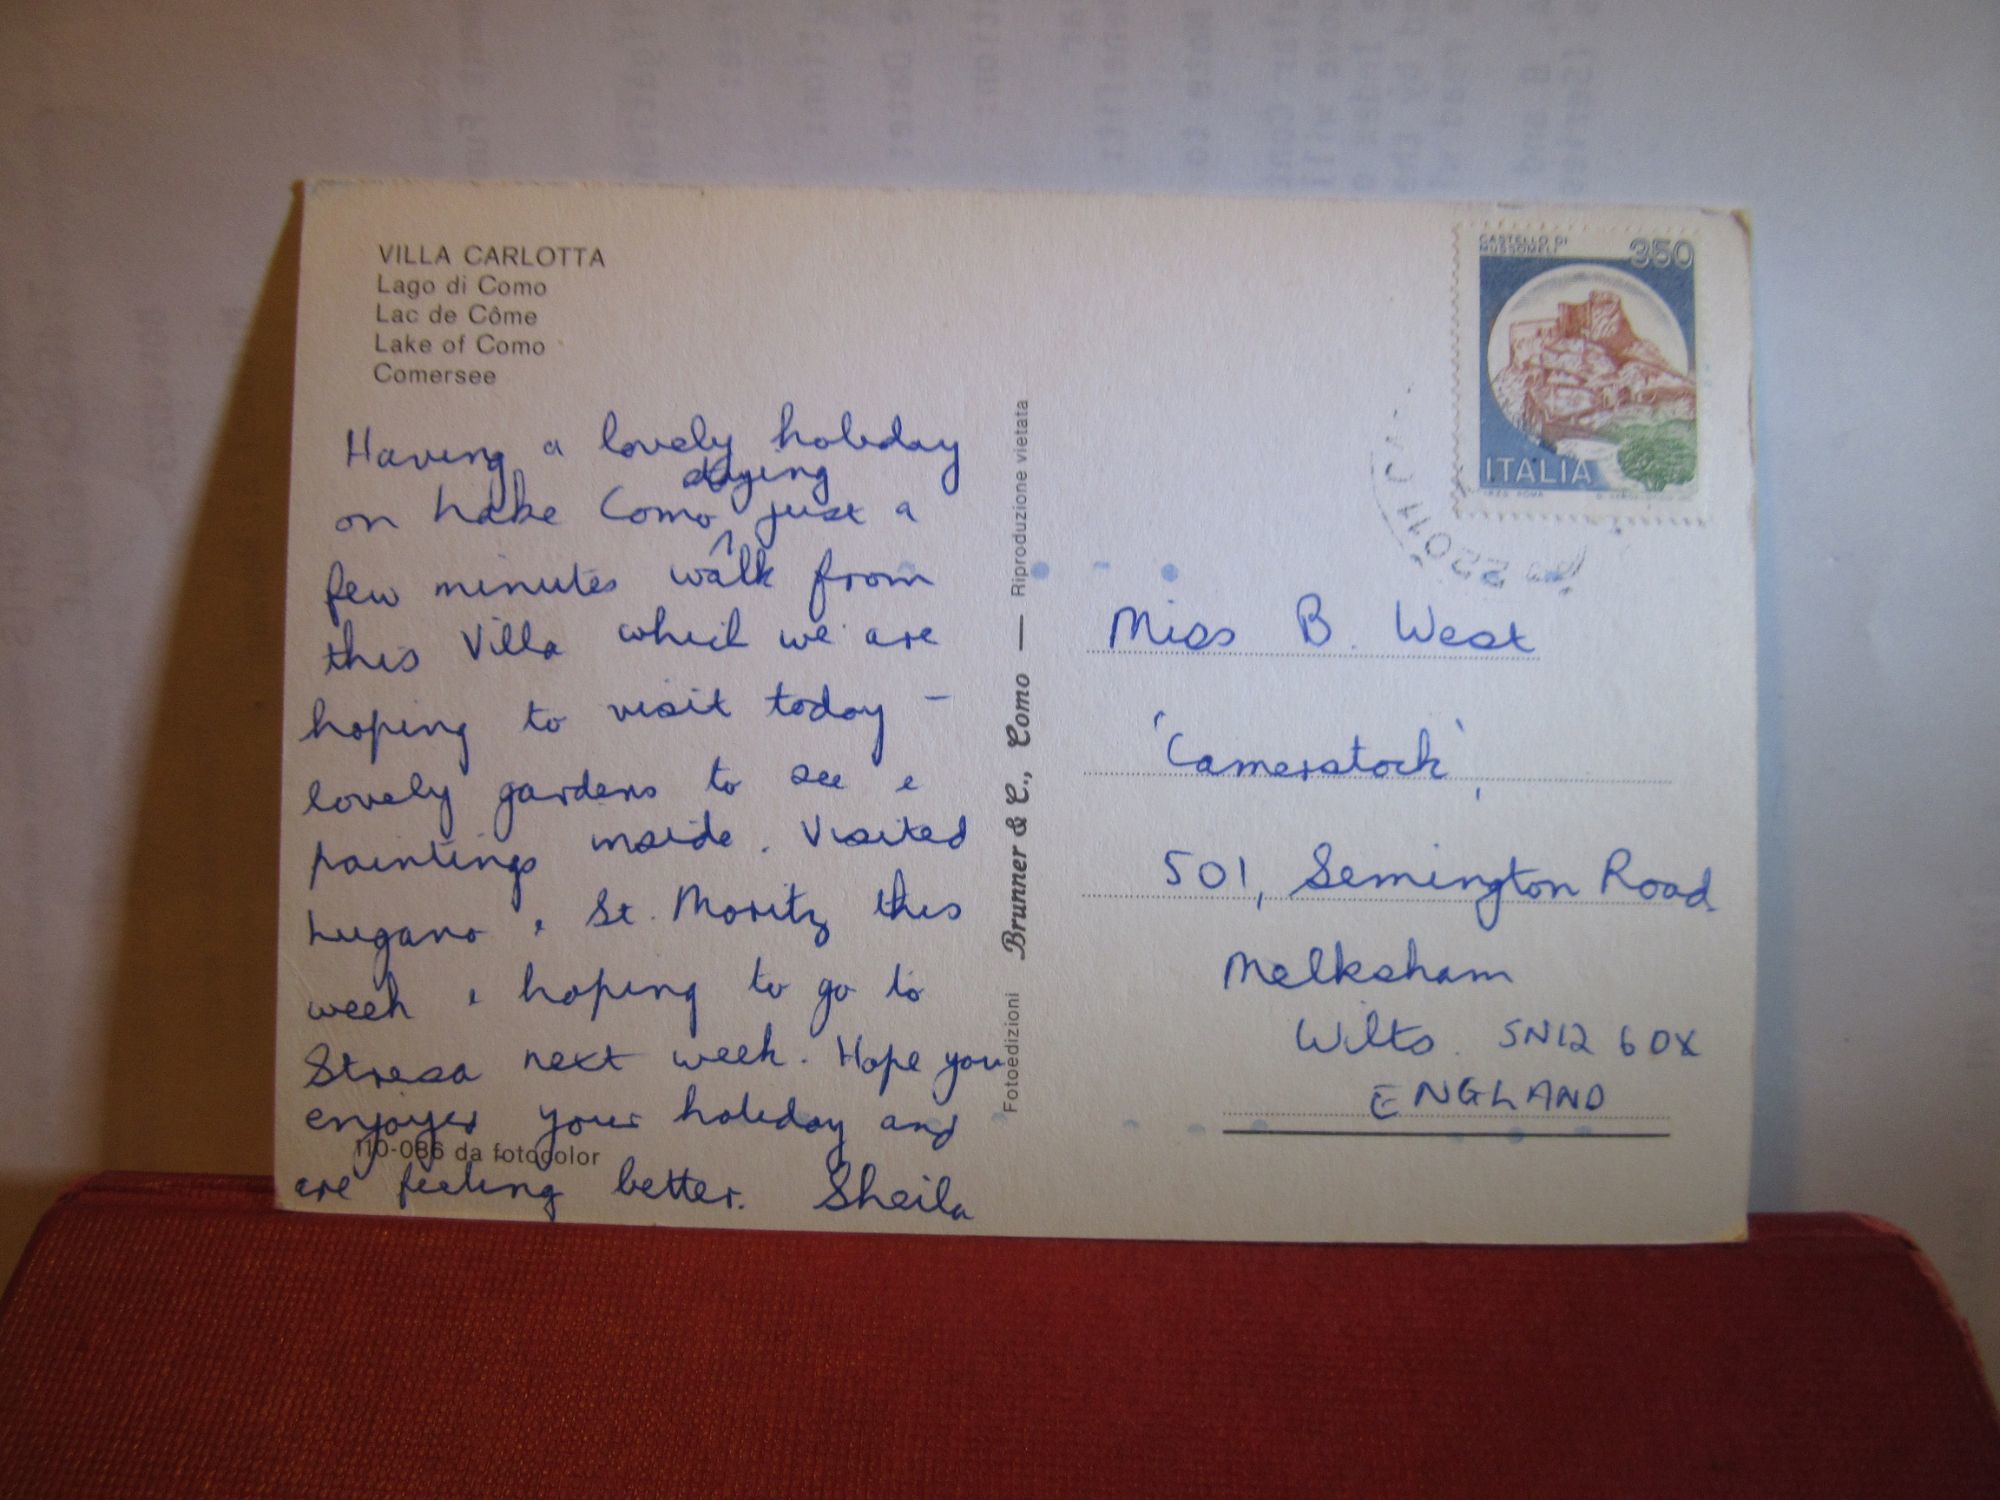 VILLA CARLOTTA
Lago di Como
Lac de Côme
Lake of Como
Comersee
Having a lovely holiday
staying
on Lake Como just a
few minutes walk from
this Villa which we are
hoping to visit today –
lovely gardens to see &
paintings inside. Visited
Lugano & St. Moritz this
week & hoping to go to
Stresa next week. Hope you
enjoyed your holiday and
are feeling better. Sheila
110-086 da fotocolor
Fotoedizioni Brunner & C., Como — Riproduzione vietata
CASTELLO DI
MUSSOMELI
350
ITALIA
22011
Miss B. West
'Camerstock',
501, Semington Road
Melksham
Wilts. SN12 6DX
ENGLAND